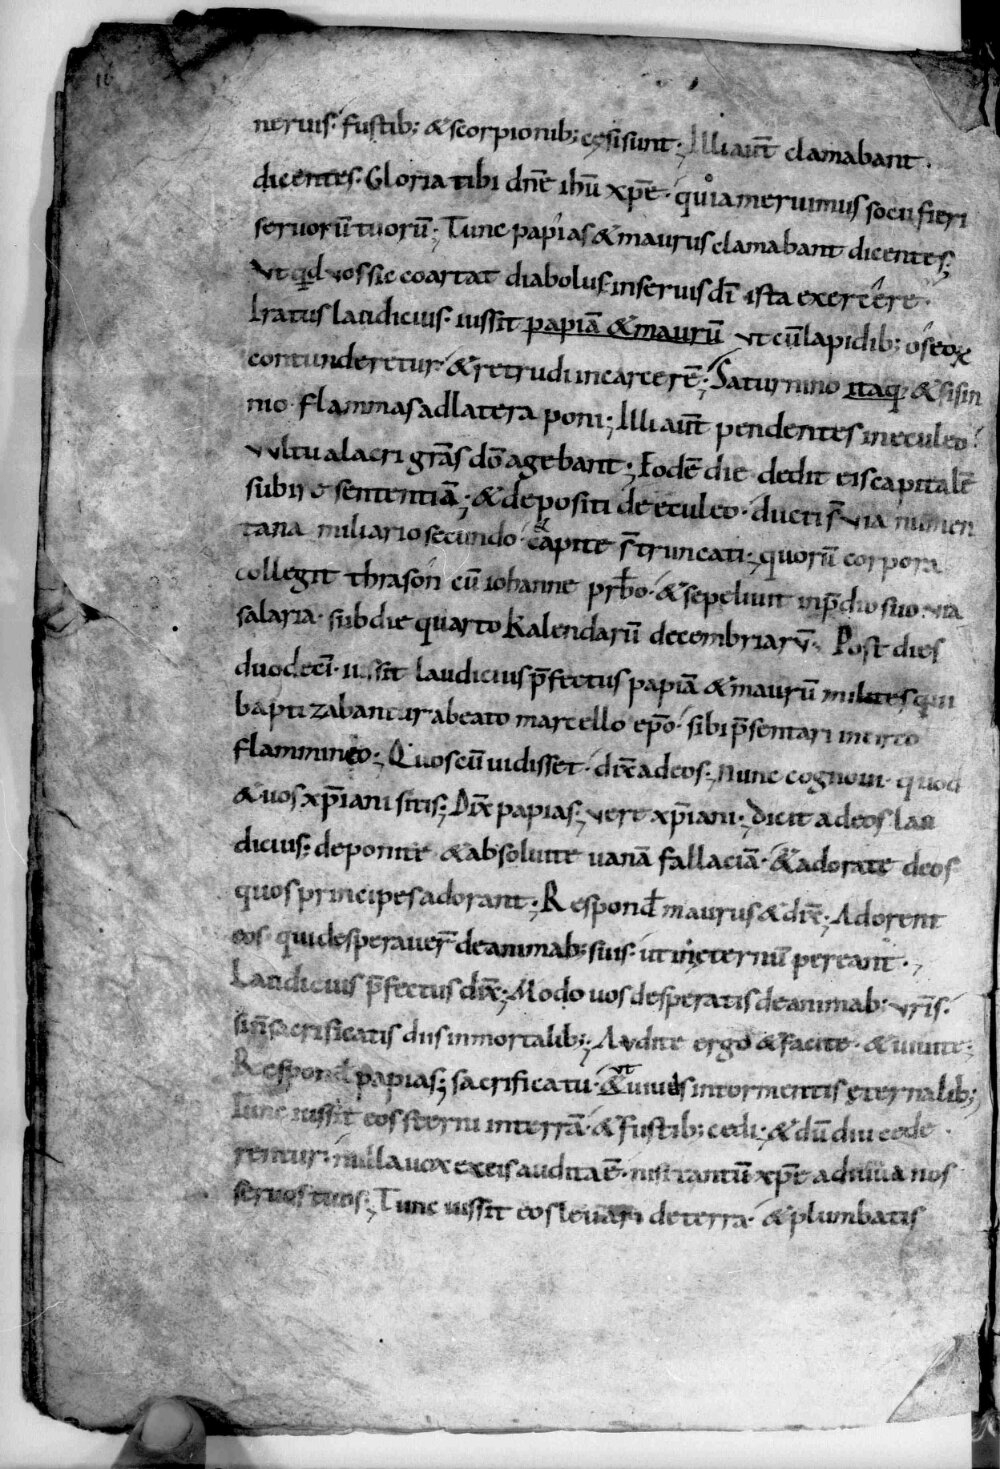 16
neruis· fustib; & scorpionib; cęsi sunt; Illi aut̄ clamabant·
dicentes· Gloria tibi dn̄e ihū xp̄e· quia meruimus socii fieri
seruorū tuorū; Tunc papias & maurus clamabant dicentes;
Vt qđ uos sic coartat diabolus· in seruis dī ista exercere·
Iratus laudicius· iussit papiā & maurū vt cū lapidib; os eoꝝ
contunderetur· & retrudi in carcerē; Saturnino itaq; & sisin
nio· flammas ad latera poni; Illi aut̄ pendentes in eculeo·
vultu alacri grās dō agebant; Eodē die dedit eis capitalē
subire sententiā; & depositi de eculeo· ducti s̄ via numen
tana miliario secundo· & capite s̄ truncati; quorū corpora
collegit thrason cū iohanne pr̄bo· & sepeliuit in p̄dio suo via
salaria· sub die quarto Kalendarū decembriarv̄· Post dies
duodecī· iussit laudicius p̄fectus papiā & maurū milites qui
baptizabantur a beato marcello ep̄o· sibi p̄sentari in circo
flammineo; Quos cū uidisset· dix̄ ad eos; Nunc cognoui· quod
& uos xp̄iani sitis; Dix̄ papias; vere xp̄iani; Dicit ad eos lau
dicius; deponite & absoluite uanā fallaciā· & adorate deos
quos principes adorant; Respond̄ maurus & dix̄; Adorent
eos qui desperauer̄ de animab; suis· ut in ęternū pereant·,
Laudicius p̄fectus dix̄; Modo uos desperatis de animab; vr̄is·
si n̄ sacrificatis diis inmortalib;; Audite ergo & facite· & uiuite;
Respond̄ papias; sacrifica tu· & ut uiues in tormentis ęternalib;;
Tunc iussit eos sterni in terrā· & fustib; cedi; & dū diu cede
rentur· nulla uox ex eis audita ē· nisi tantū xp̄e adiuua nos
seruos tuos; Tunc iussit eos leuari de terra· & plumbatis